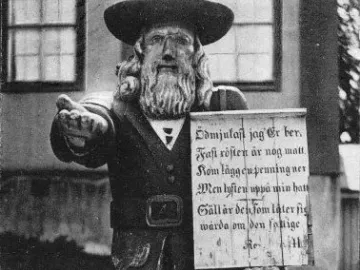 Ödmjukast jag Er ber,
Fast rösten är nog matt.
Kom lägg en penning ner
Men lyften uppå min hatt
Säll är den som låter sig
wårda om den fattige